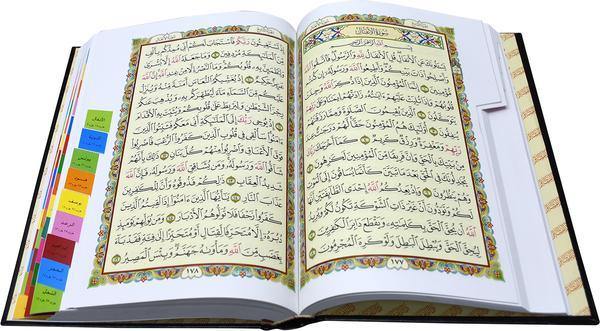 سُورَةُ الأَنفَالِ
بِسْمِ اللَّهِ الرَّحْمَٰنِ الرَّحِيمِ
يَسْـَٔلُونَكَ عَنِ الْأَنفَالِ قُلِ الْأَنفَالُ لِلَّهِ وَالرَّسُولِ فَاتَّقُوا اللَّهَ
وَأَصْلِحُوا ذَاتَ بَيْنِكُمْ وَأَطِيعُوا اللَّهَ وَرَسُولَهُ إِن كُنتُم
مُّؤْمِنِينَ ١ إِنَّمَا الْمُؤْمِنُونَ الَّذِينَ إِذَا ذُكِرَ اللَّهُ وَجِلَتْ
قُلُوبُهُمْ وَإِذَا تُلِيَتْ عَلَيْهِمْ ءَايَٰتُهُ زَادَتْهُمْ إِيمَٰنًا وَعَلَىٰ
رَبِّهِمْ يَتَوَكَّلُونَ ٢ الَّذِينَ يُقِيمُونَ الصَّلَوٰةَ وَمِمَّا رَزَقْنَٰهُمْ
يُنفِقُونَ ٣ أُولَٰئِكَ هُمُ الْمُؤْمِنُونَ حَقًّا لَّهُمْ دَرَجَٰتٌ عِندَ
رَبِّهِمْ وَمَغْفِرَةٌ وَرِزْقٌ كَرِيمٌ ٤ كَمَا أَخْرَجَكَ رَبُّكَ مِن
بَيْتِكَ بِالْحَقِّ وَإِنَّ فَرِيقًا مِّنَ الْمُؤْمِنِينَ لَكَٰرِهُونَ ٥
يُجَٰدِلُونَكَ فِي الْحَقِّ بَعْدَ مَا تَبَيَّنَ كَأَنَّمَا يُسَاقُونَ إِلَى الْمَوْتِ
وَهُمْ يَنظُرُونَ ٦ وَإِذْ يَعِدُكُمُ اللَّهُ إِحْدَى الطَّائِفَتَيْنِ أَنَّهَا
لَكُمْ وَتَوَدُّونَ أَنَّ غَيْرَ ذَاتِ الشَّوْكَةِ تَكُونُ لَكُمْ وَيُرِيدُ اللَّهُ
أَن يُحِقَّ الْحَقَّ بِكَلِمَٰتِهِ وَيَقْطَعَ دَابِرَ الْكَٰفِرِينَ ٧
لِيُحِقَّ الْحَقَّ وَيُبْطِلَ الْبَٰطِلَ وَلَوْ كَرِهَ الْمُجْرِمُونَ ٨
١٧٧
إِذْ تَسْتَغِيثُونَ رَبَّكُمْ فَاسْتَجَابَ لَكُمْ أَنِّي مُمِدُّكُم بِأَلْفٍ
مِّنَ الْمَلَٰئِكَةِ مُرْدِفِينَ ٩ وَمَا جَعَلَهُ اللَّهُ إِلَّا بُشْرَىٰ
وَلِتَطْمَئِنَّ بِهِ قُلُوبُكُمْ وَمَا النَّصْرُ إِلَّا مِنْ عِندِ اللَّهِ إِنَّ اللَّهَ عَزِيزٌ
حَكِيمٌ ١٠ إِذْ يُغَشِّيكُمُ النُّعَاسَ أَمَنَةً مِّنْهُ وَيُنَزِّلُ
عَلَيْكُم مِّنَ السَّمَاءِ مَاءً لِّيُطَهِّرَكُم بِهِ وَيُذْهِبَ عَنكُمْ
رِجْزَ الشَّيْطَٰنِ وَلِيَرْبِطَ عَلَىٰ قُلُوبِكُمْ وَيُثَبِّتَ بِهِ الْأَقْدَامَ
١١ إِذْ يُوحِي رَبُّكَ إِلَى الْمَلَٰئِكَةِ أَنِّي مَعَكُمْ فَثَبِّتُوا الَّذِينَ
ءَامَنُوا سَأُلْقِي فِي قُلُوبِ الَّذِينَ كَفَرُوا الرُّعْبَ فَاضْرِبُوا
فَوْقَ الْأَعْنَاقِ وَاضْرِبُوا مِنْهُمْ كُلَّ بَنَانٍ ١٢ ذَٰلِكَ بِأَنَّهُمْ
شَاقُّوا اللَّهَ وَرَسُولَهُ وَمَن يُشَاقِقِ اللَّهَ وَرَسُولَهُ فَإِنَّ اللَّهَ
شَدِيدُ الْعِقَابِ ١٣ ذَٰلِكُمْ فَذُوقُوهُ وَأَنَّ لِلْكَٰفِرِينَ
عَذَابَ النَّارِ ١٤ يَٰأَيُّهَا الَّذِينَ ءَامَنُوا إِذَا لَقِيتُمُ الَّذِينَ
كَفَرُوا زَحْفًا فَلَا تُوَلُّوهُمُ الْأَدْبَارَ ١٥ وَمَن يُوَلِّهِمْ يَوْمَئِذٍ
دُبُرَهُ إِلَّا مُتَحَرِّفًا لِّقِتَالٍ أَوْ مُتَحَيِّزًا إِلَىٰ فِئَةٍ فَقَدْ بَاءَ
بِغَضَبٍ مِّنَ اللَّهِ وَمَأْوَىٰهُ جَهَنَّمُ وَبِئْسَ الْمَصِيرُ ١٦
١٧٨
الأنفال
التوبة
يونس
هود
يوسف
الرعد
إبراهيم
الحجر
النحل